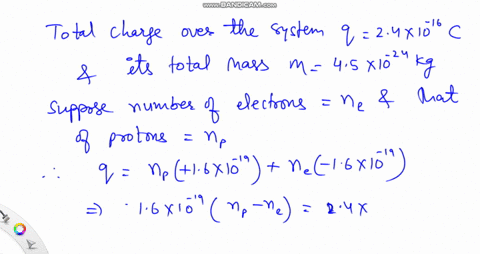 WWW.BANDICAM.COM
Total charge over the system q = 2.4×10⁻¹⁶ C
& its total mass m = 4.5×10⁻²⁴ kg
Suppose number of electrons = nₑ & that
of protons = nₚ
∴ q = nₚ(+1.6×10⁻¹⁹) + nₑ(-1.6×10⁻¹⁹)
⇒ 1.6×10⁻¹⁹ (nₚ - nₑ) = 2.4×